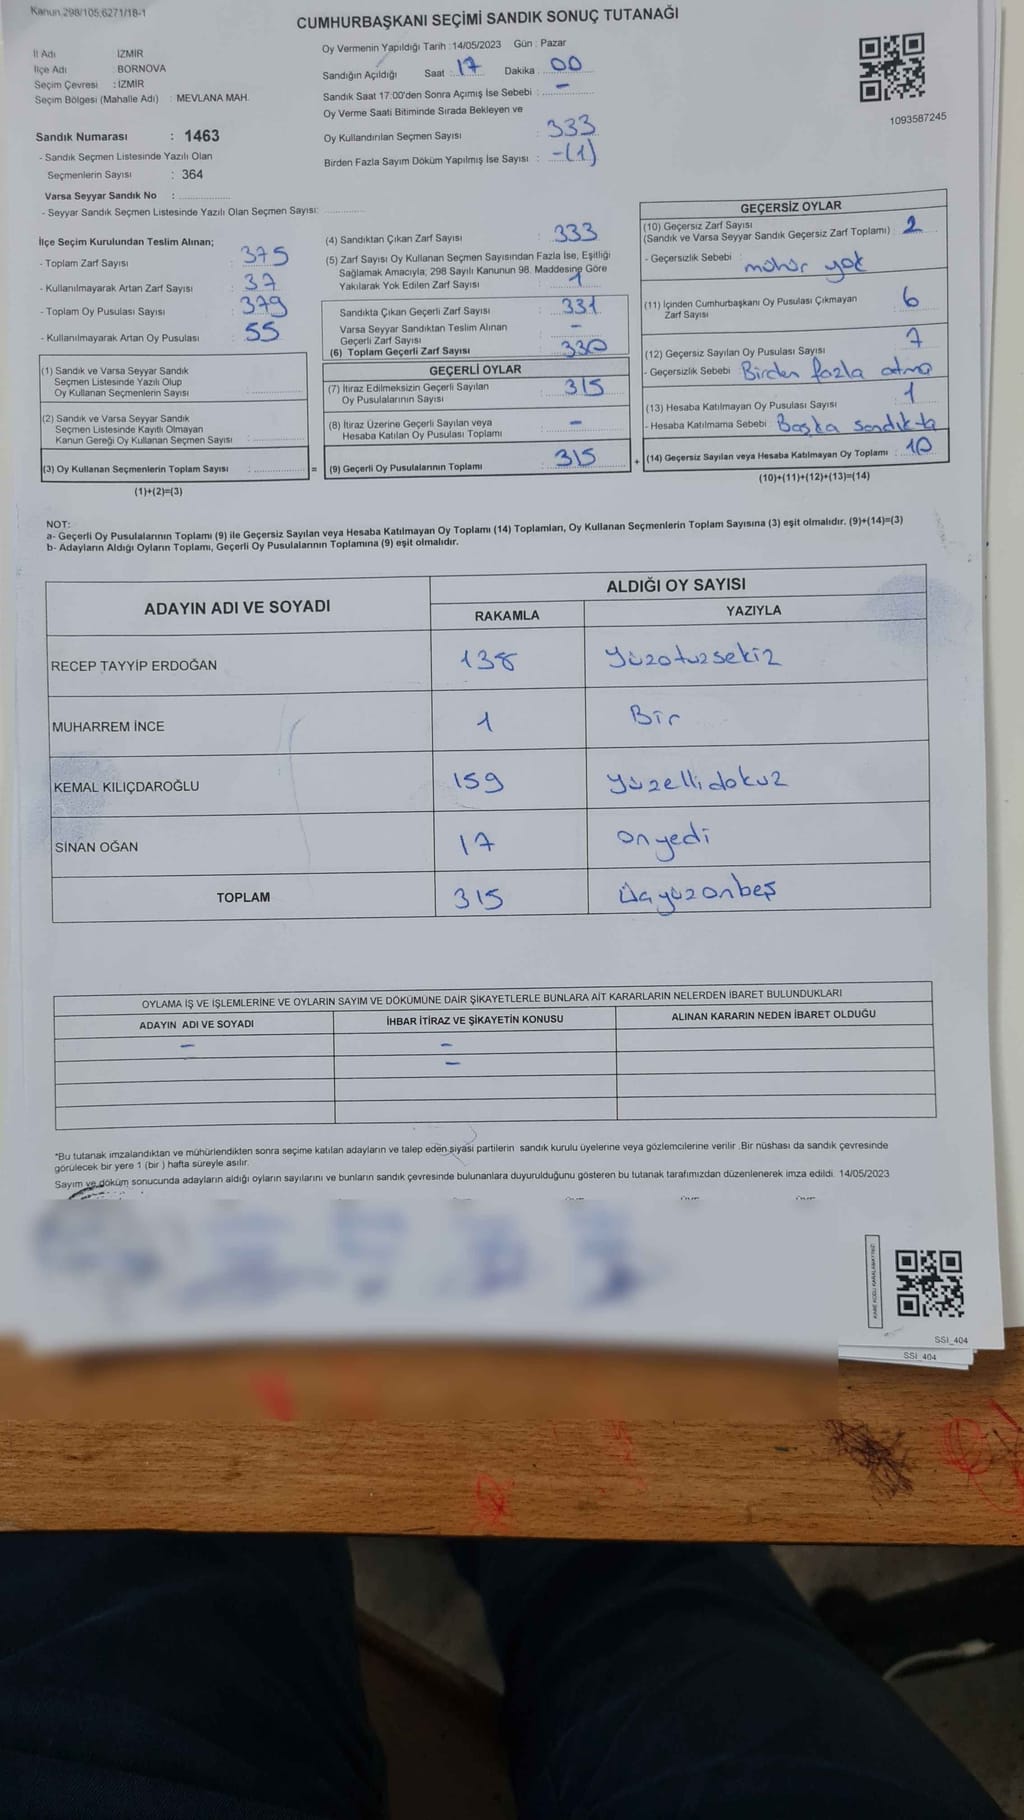 Kanun.298/105,6271/18-1
CUMHURBAŞKANI SEÇİMİ SANDIK SONUÇ TUTANAĞI
İl Adı : İZMİR
İlçe Adı : BORNOVA
Seçim Çevresi : İZMİR
Seçim Bölgesi (Mahalle Adı) : MEVLANA MAH.
Sandık Numarası : 1463
- Sandık Seçmen Listesinde Yazılı Olan
Seçmenlerin Sayısı : 364
Varsa Seyyar Sandık No :
- Seyyar Sandık Seçmen Listesinde Yazılı Olan Seçmen Sayısı:
Oy Vermenin Yapıldığı Tarih : 14/05/2023 Gün : Pazar
Sandığın Açıldığı Saat : 17 Dakika : 00
Sandık Saat 17:00'den Sonra Açımış İse Sebebi : -
Oy Verme Saati Bitiminde Sırada Bekleyen ve
Oy Kullandırılan Seçmen Sayısı : 333
Birden Fazla Sayım Döküm Yapılmış İse Sayısı : -(1)
1093587245
İlçe Seçim Kurulundan Teslim Alınan;
- Toplam Zarf Sayısı : 375
- Kullanılmayarak Artan Zarf Sayısı : 37
- Toplam Oy Pusulası Sayısı : 379
- Kullanılmayarak Artan Oy Pusulası : 55
(1) Sandık ve Varsa Seyyar Sandık
Seçmen Listesinde Yazılı Olup
Oy Kullanan Seçmenlerin Sayısı :
(2) Sandık ve Varsa Seyyar Sandık
Seçmen Listesinde Kayıtlı Olmayan
Kanun Gereği Oy Kullanan Seçmen Sayısı :
(3) Oy Kullanan Seçmenlerin Toplam Sayısı :
(1)+(2)=(3)
(4) Sandıktan Çıkan Zarf Sayısı : 333
(5) Zarf Sayısı Oy Kullanan Seçmen Sayısından Fazla İse, Eşitliği
Sağlamak Amacıyla, 298 Sayılı Kanunun 98. Maddesine Göre
Yakılarak Yok Edilen Zarf Sayısı : 1
Sandıkta Çıkan Geçerli Zarf Sayısı : 331
Varsa Seyyar Sandıktan Teslim Alınan
Geçerli Zarf Sayısı : -
(6) Toplam Geçerli Zarf Sayısı : 330
GEÇERLİ OYLAR
(7) İtiraz Edilmeksizin Geçerli Sayılan
Oy Pusulalarının Sayısı : 315
(8) İtiraz Üzerine Geçerli Sayılan veya
Hesaba Katılan Oy Pusulası Toplamı : -
= (9) Geçerli Oy Pusulalarının Toplamı : 315
GEÇERSİZ OYLAR
(10) Geçersiz Zarf Sayısı
(Sandık ve Varsa Seyyar Sandık Geçersiz Zarf Toplamı) : 2
- Geçersizlik Sebebi : mühür yok
(11) İçinden Cumhurbaşkanı Oy Pusulası Çıkmayan
Zarf Sayısı : 6
(12) Geçersiz Sayılan Oy Pusulası Sayısı : 7
- Geçersizlik Sebebi : Birden fazla atma
(13) Hesaba Katılmayan Oy Pusulası Sayısı : 1
- Hesaba Katılmama Sebebi : Başka sandıkta
+ (14) Geçersiz Sayılan veya Hesaba Katılmayan Oy Toplamı : 10
(10)+(11)+(12)+(13)=(14)
NOT:
a- Geçerli Oy Pusulalarının Toplamı (9) ile Geçersiz Sayılan veya Hesaba Katılmayan Oy Toplamı (14) Toplamları, Oy Kullanan Seçmenlerin Toplam Sayısına (3) eşit olmalıdır. (9)+(14)=(3)
b- Adayların Aldığı Oyların Toplamı, Geçerli Oy Pusulalarının Toplamına (9) eşit olmalıdır.
ADAYIN ADI VE SOYADI ALDIĞI OY SAYISI
RAKAMLA YAZIYLA
RECEP TAYYİP ERDOĞAN 138 Yüzotuzsekiz
MUHARREM İNCE 1 Bir
KEMAL KILIÇDAROĞLU 159 Yüzellidokuz
SİNAN OĞAN 17 onyedi
TOPLAM 315 Üçyüzonbeş
OYLAMA İŞ VE İŞLEMLERİNE VE OYLARIN SAYIM VE DÖKÜMÜNE DAİR ŞİKAYETLERLE BUNLARA AİT KARARLARIN NELERDEN İBARET BULUNDUKLARI
ADAYIN ADI VE SOYADI İHBAR İTİRAZ VE ŞİKAYETİN KONUSU ALINAN KARARIN NEDEN İBARET OLDUĞU
- -
-
*Bu tutanak imzalandıktan ve mühürlendikten sonra seçime katılan adayların ve talep eden siyasi partilerin sandık kurulu üyelerine veya gözlemcilerine verilir .Bir nüshası da sandık çevresinde
görülecek bir yere 1 (bir ) hafta süreyle asılır.
Sayım ve döküm sonucunda adayların aldığı oyların sayılarını ve bunların sandık çevresinde bulunanlara duyurulduğunu gösteren bu tutanak tarafımızdan düzenlenerek imza edildi. 14/05/2023
SSI_404
SSI_404